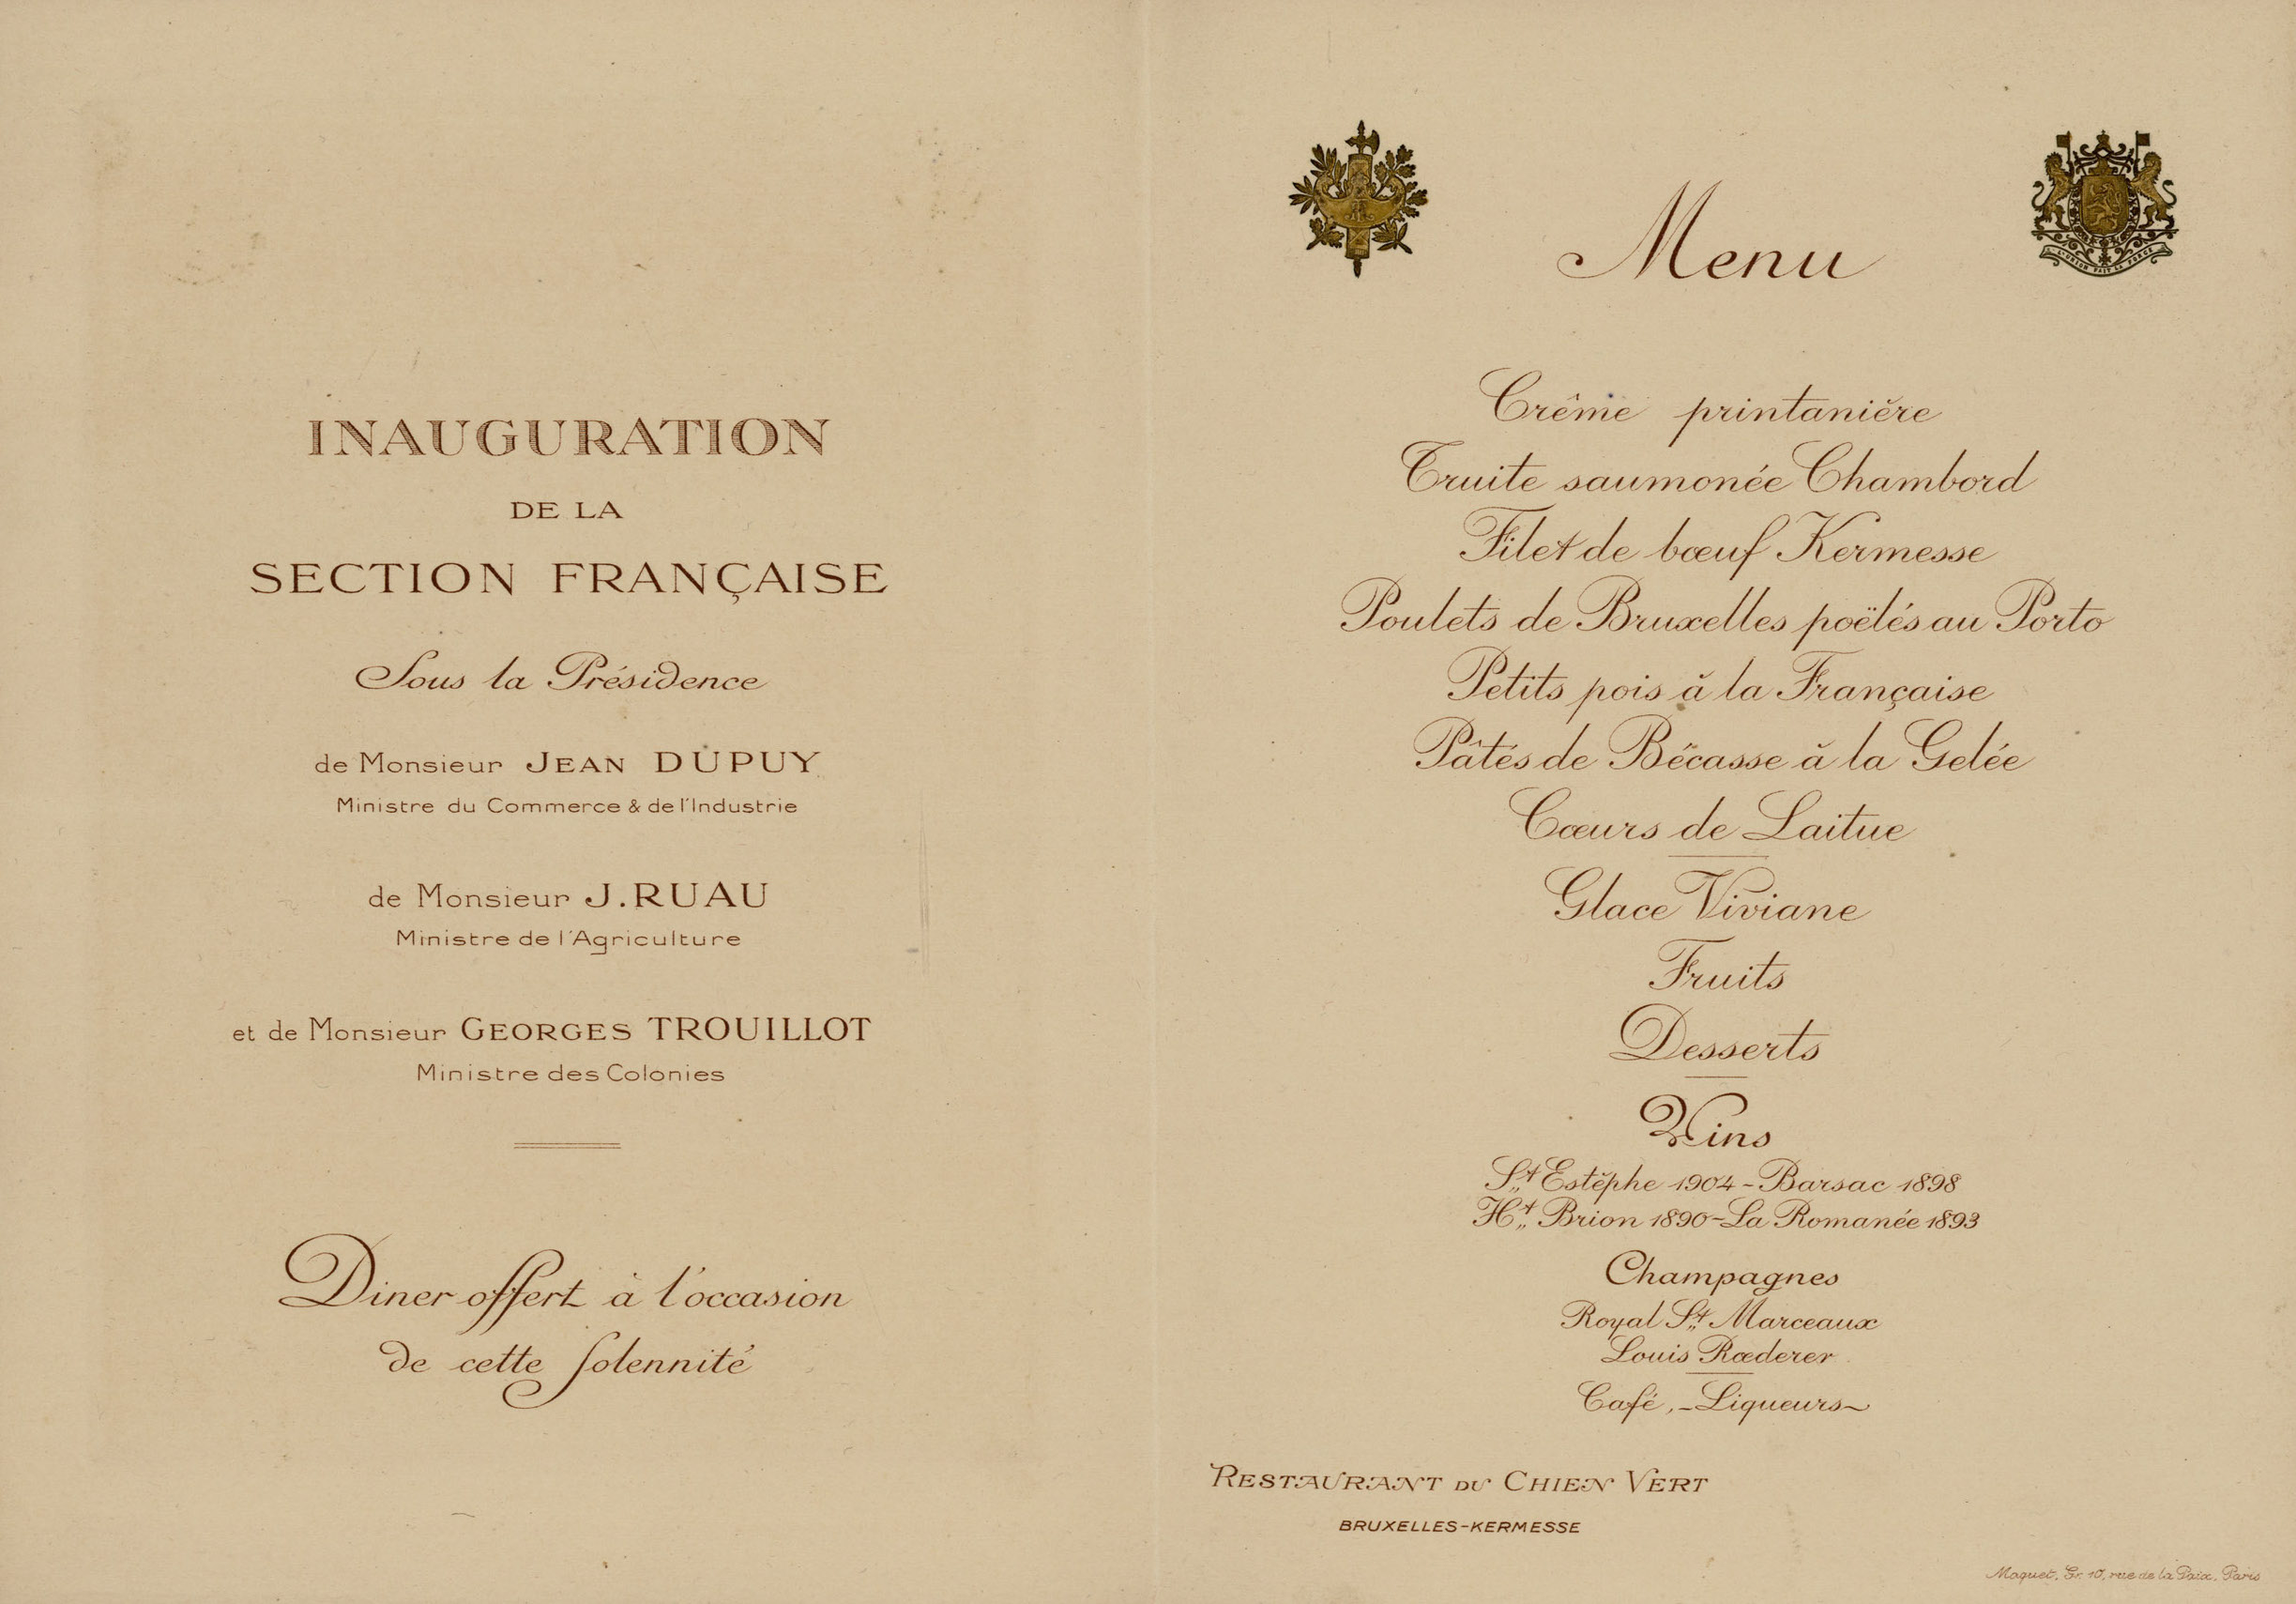 INAUGURATION
DE LA
SECTION FRANÇAISE
Sous la Présidence
de Monsieur JEAN DUPUY
Ministre du Commerce & de l'Industrie
de Monsieur J. RUAU
Ministre de l'Agriculture
et de Monsieur GEORGES TROUILLOT
Ministre des Colonies
Diner offert à l'occasion
de cette Solennité
Menu
L'UNION FAIT LA FORCE
Crême printanière
Truite saumonée Chambord
Filet de bœuf Kermesse
Poulets de Bruxelles poëlés au Porto
Petits pois à la Française
Pâtés de Bécasse à la Gelée
Cœurs de Laitue
Glace Viviane
Fruits
Desserts
Vins
St Estèphe 1904 - Barsac 1898
Ht Brion 1890 - La Romanée 1893
Champagnes
Royal St Marceaux
Louis Rœderer
Café, - Liqueurs
RESTAURANT DU CHIEN VERT
BRUXELLES-KERMESSE
Maquet, Gr. 10, rue de la Paix, Paris